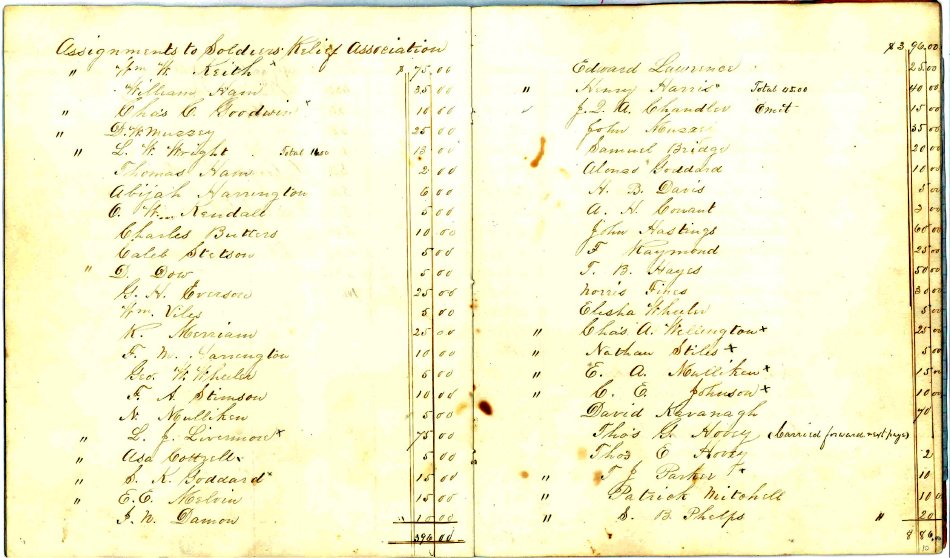 Assignments to Soldiers' Relief Association
" Wm W. Keith x $ 75.00
William Ham 35.00
" Chas C. Goodwin x 10 00
" D. W. Muzzey 25 00
" L. W. Wright . Total 16.00 13 00
Thomas Ham 2 00
Abijah Harrington 6 00
C. Wm Kendall 5 00
Charles Butters 10.00
Caleb Stetson 5 00
" D. Dow 5 00
G. H. Everson 25 00
Wm. Viles 5 00
K. Merriam 25 00
F. M. Harrington 10 00
Geo. W. Wheeler 5 00
F. A. Stimson 10 00
N. Mulliken 5 00
" L. J. Livermore x 75 00
" Asa Cottrell x 5 00
" S. K. Goddard x 15 00
" E. C. Melvin 15 00
J. N. Damon " 10 00
396 00
$ 396.00
Edward Lawrence 25 00
" Henry Harris x Total 45.00 40 00
J. Q. A. Chandler Omit 15 00
John Muzzey 35 00
Samuel Bridge 20 00
Alonzo Goddard 10 00
H. B. Davis 5 00
A. H. Conant 3 00
John Hastings 60 00
F Raymond 25 00
T. B. Hayes 50 00
Norris Fines 30 00
Elisha Wheeler 5 00
" Chas A. Wellington x 25 00
" Nathan Stiles x 5 00
" E. A. Mulliken x 15 00
" C. E. Johnson x 10 00
David Kavanagh 70
Tho's G. Hovey (Carried forward next page)
Thos C Hovey 2
" T J Parker x 10
" Patrick Mitchell 10
" S. B. Phelps " 20
8 86